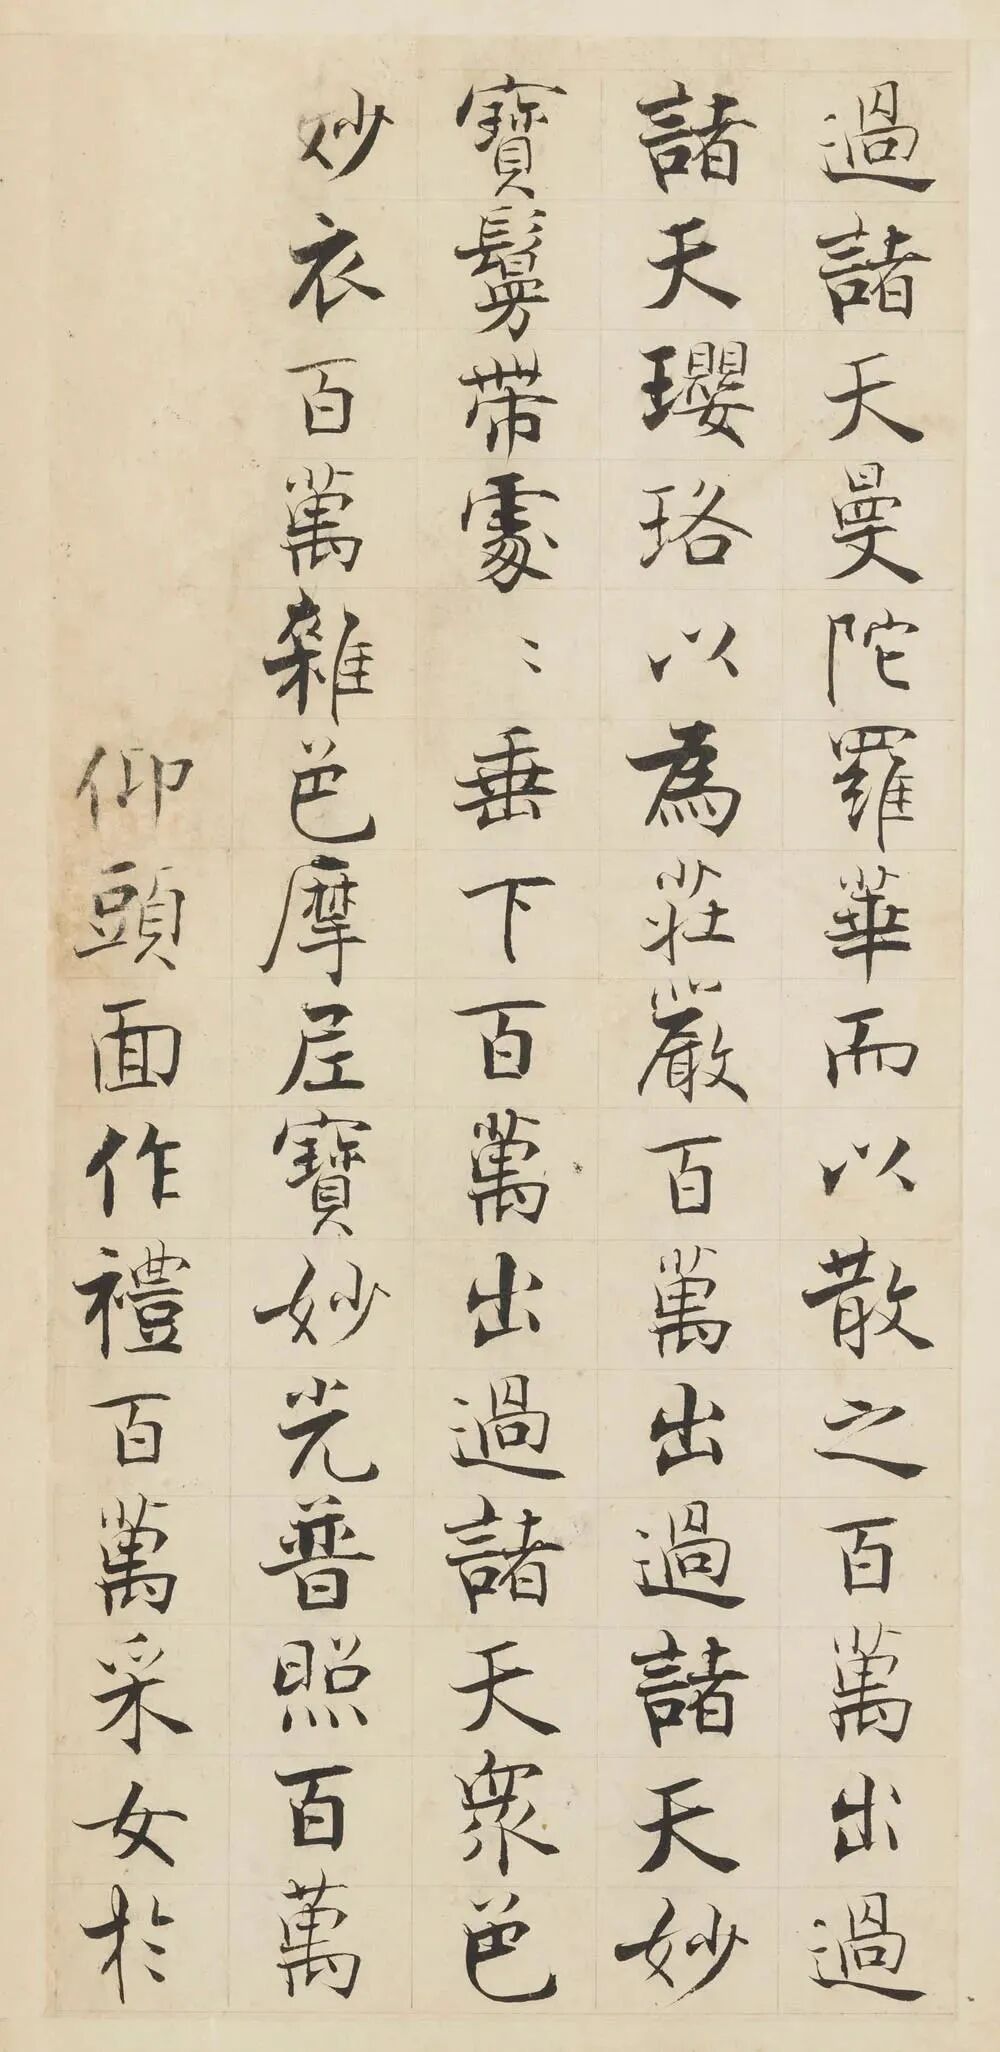 過諸天曼陀羅華而以散之百萬出過
諸天瓔珞以為莊嚴百萬出過諸天妙
寶鬘帶處〻垂下百萬出過諸天眾色
妙衣百萬雜色摩尼寶妙光普照百萬
仰頭面作禮百萬采女於